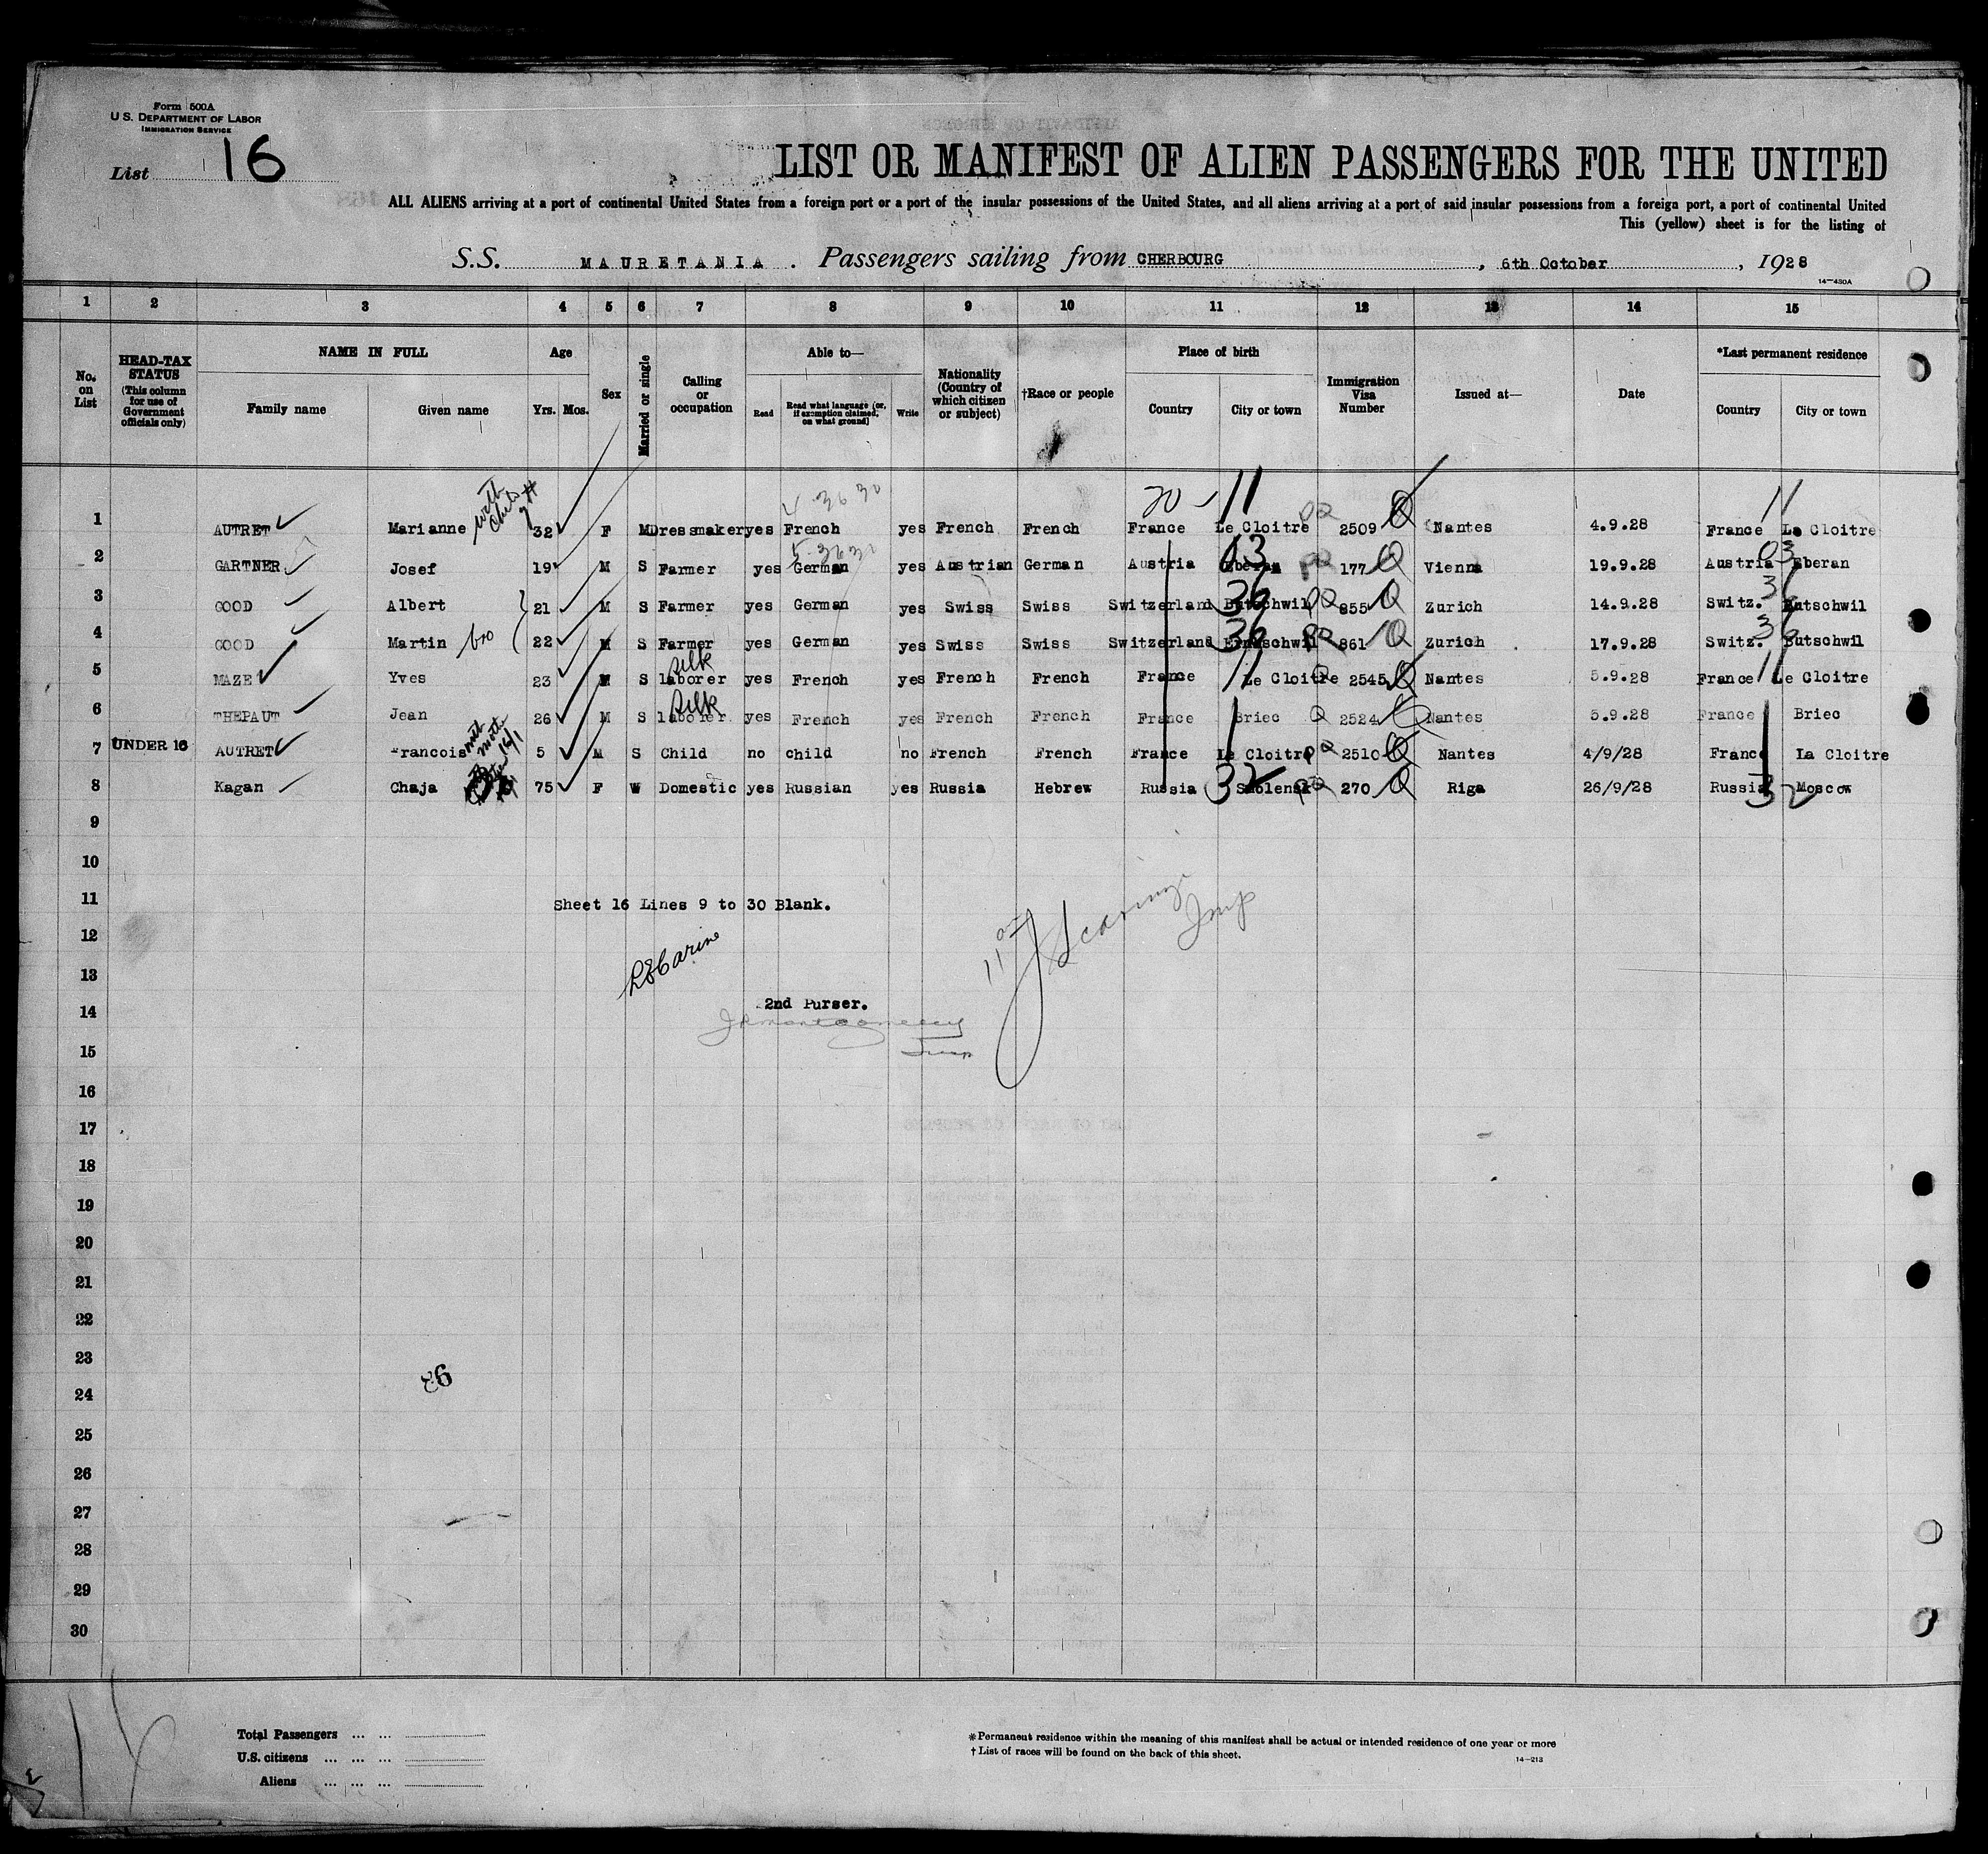 Form 500A
U.S. DEPARTMENT OF LABOR
IMMIGRATION SERVICE
List 16
LIST OR MANIFEST OF ALIEN PASSENGERS FOR THE UNITED
ALL ALIENS arriving at a port of continental United States from a foreign port or a port of the insular possessions of the United States, and all aliens arriving at a port of said insular possessions from a foreign port, a port of continental United
This (yellow) sheet is for the listing of
S.S. MAURETANIA. Passengers sailing from CHERBOURG, 6th October, 1928
14—430A
1 2 3 4 5 6 7 8 9 10 11 12 13 14 15
No. on List
HEAD-TAX STATUS (This column for use of Government officials only)
NAME IN FULL Family name Given name
Age Yrs. Mos.
Sex
Married or single
Calling or occupation
Able to— Read Read what language [or, if exemption claimed, on what ground] Write
Nationality (Country of which citizen or subject)
†Race or people
Place of birth Country City or town
Immigration Visa Number
Issued at—
Date
*Last permanent residence Country City or town
20 - 11 11
1 AUTRET Marianne with 32 F M Dressmaker yes French yes French French France Le Cloitre 2509 Nantes 4.9.28 France Le Cloitre
2 GARTNER Josef 19 M S Farmer yes German yes Austrian German Austria 03 177 Vienna 19.9.28 Austria 03 Eberan
3 GOOD Albert 21 M S Farmer yes German yes Swiss Swiss Switzerland 36 Butschwil 855 Zurich 14.9.28 Switz. 36 Butschwil
4 GOOD Martin bro 22 M S Farmer yes German yes Swiss Swiss Switzerland 36 861 Zurich 17.9.28 Switz. 36 Butschwil
5 MAZE Yves 23 M S silk laborer yes French yes French French France 11 Le Cloitre 2545 Nantes 5.9.28 France 11 Le Cloitre
6 THEPAUT Jean 26 M S silk laborer yes French yes French French France Briec 2524 Nantes 5.9.28 France Briec
7 UNDER 16 AUTRET Francois with mother 5 M S Child no child no French French France Le Cloitre 2510 Nantes 4/9/28 France La Cloitre
8 Kagan Chaja 75 F W Domestic yes Russian yes Russia Hebrew Russia 32 Smolensk 270 Riga 26/9/28 Russia 32 Moscow
9
10
11
Sheet 16 Lines 9 to 30 Blank.
12
13
14
2nd Purser.
15
16
17
18
19
20
21
22
23
24
25
26
27
28
29
30
Total Passengers ... ...
U.S. citizens ... ... ...
Aliens ... ... ...
*Permanent residence within the meaning of this manifest shall be actual or intended residence of one year or more
†List of races will be found on the back of this sheet.
14—213